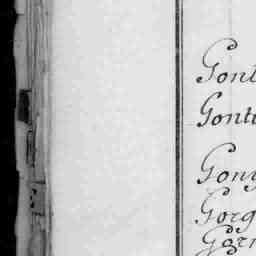 Gont
Gontu
Gony
Gorg
Gorn